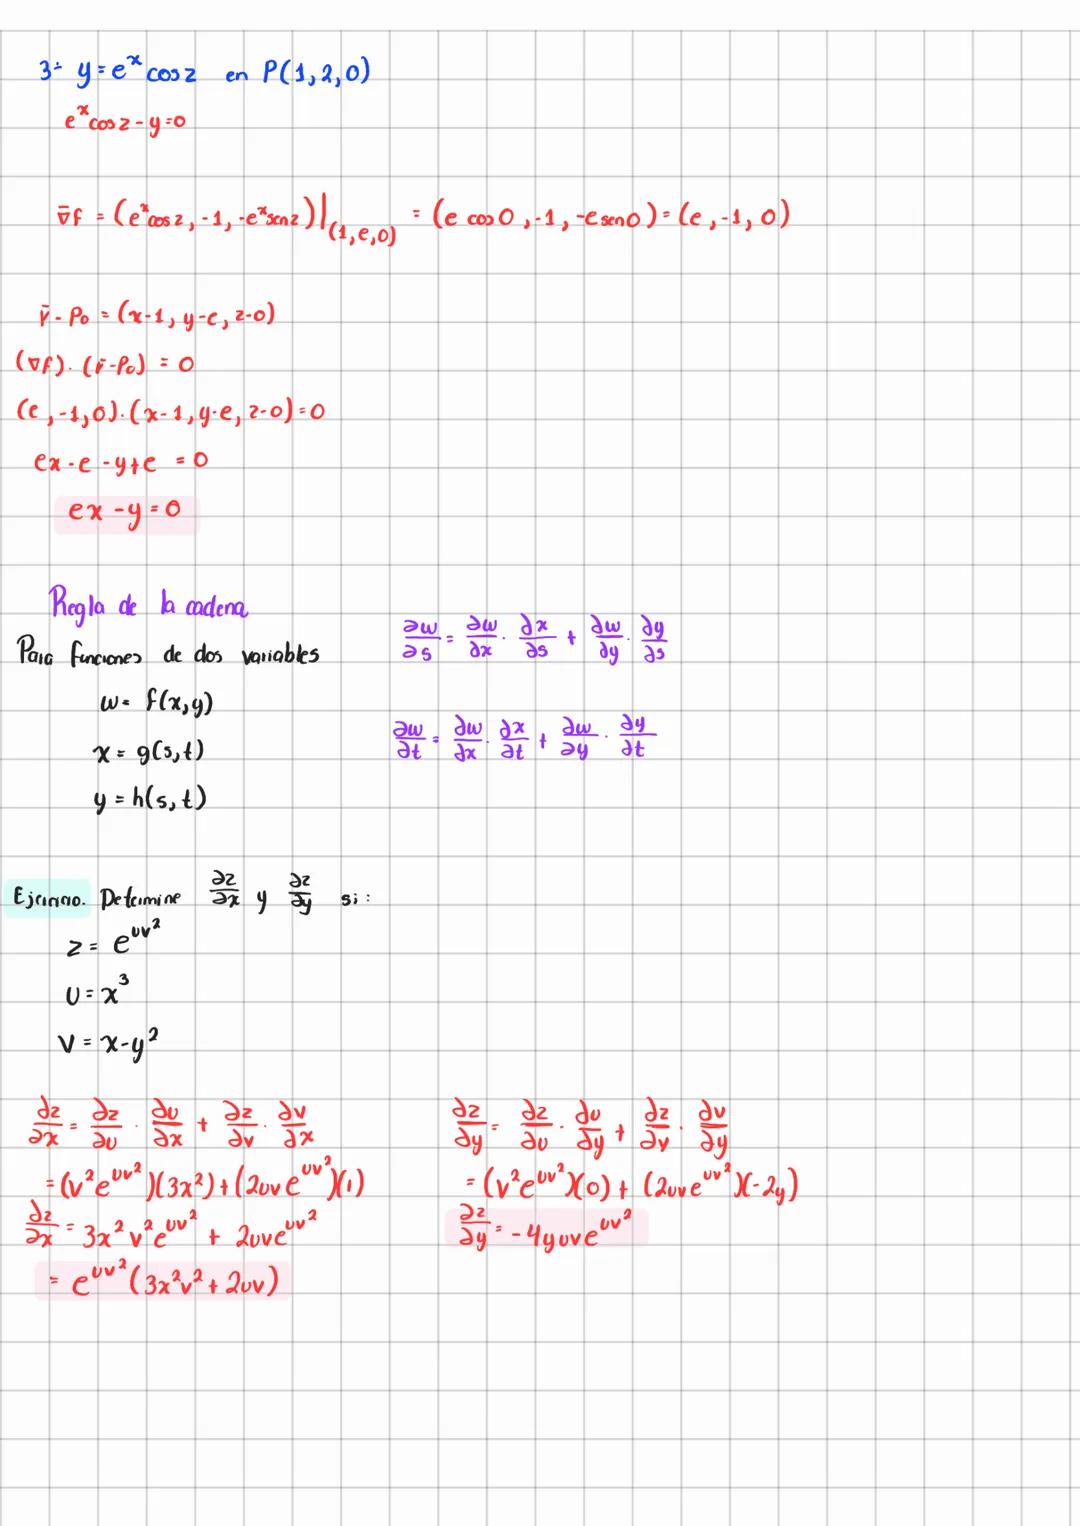 3- y = e^x cos z en P(1,2,0)
e^x cos z - y = 0
∇̄f = (e^x cos z, -1, -e^x sen z)|_(1,e,0) = (e cos 0, -1, -e sen 0) = (e, -1, 0)
r̄ - P₀ = (x-1, y-e, z-0)
(∇f) · (r̄ - P₀) = 0
(e, -1, 0) · (x-1, y-e, z-0) = 0
ex - e - y + e = 0
ex - y = 0
Regla de la cadena
Para funciones de dos variables
∂w/∂s = ∂w/∂x · ∂x/∂s + ∂w/∂y · ∂y/∂s
w = f(x,y)
x = g(s,t)
∂w/∂t = ∂w/∂x · ∂x/∂t + ∂w/∂y · ∂y/∂t
y = h(s,t)
Ejercicio. Determine ∂z/∂x y ∂z/∂y si:
z = e^(uv²)
u = x³
v = x - y²
∂z/∂x = ∂z/∂u · ∂u/∂x + ∂z/∂v · ∂v/∂x
= (v²e^(uv²))(3x²) + (2uve^(uv²))(1)
∂z/∂x = 3x²v²e^(uv²) + 2uve^(uv²)
= e^(uv²)(3x²v² + 2uv)
∂z/∂y = ∂z/∂u · ∂u/∂y + ∂z/∂v · ∂v/∂y
= (v²e^(uv²))(0) + (2uve^(uv²))(-2y)
∂z/∂y = -4yuve^(uv²)